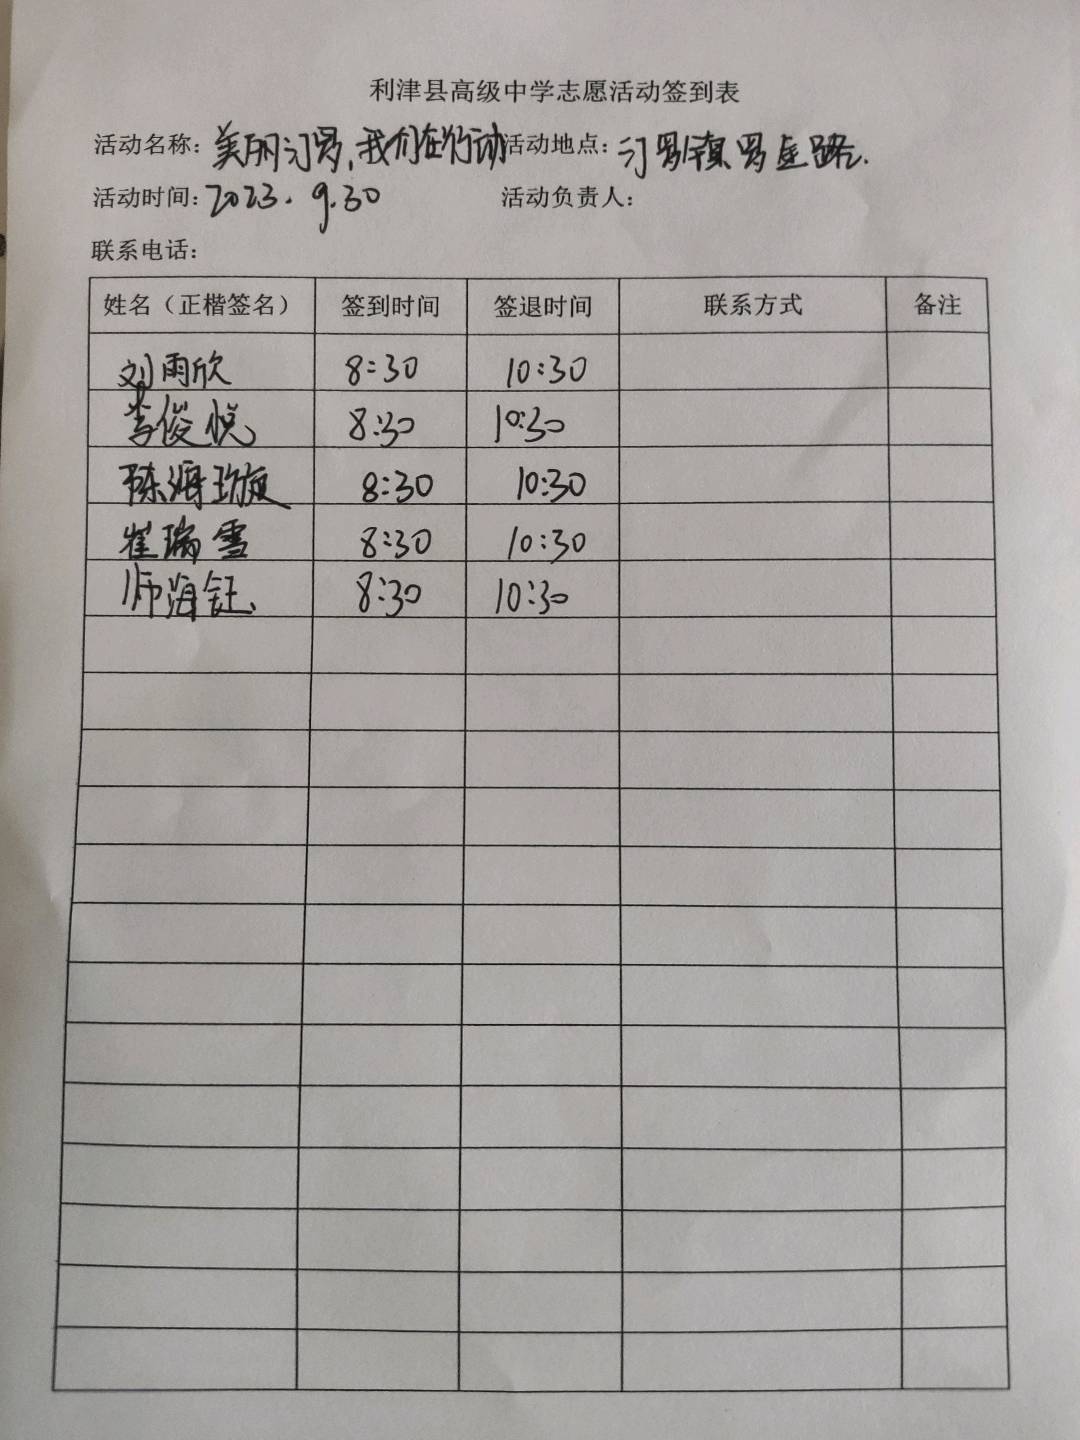 利津县高级中学志愿活动签到表
活动名称：美丽汀罗，我们在行动 活动地点：汀罗镇罗虚路.
活动时间：2023.9.30 活动负责人：
联系电话：
姓名（正楷签名） 签到时间 签退时间 联系方式 备注
刘雨欣 8:30 10:30
李俊悦 8:30 10:30
陈海璇 8:30 10:30
崔瑞雪 8:30 10:30
师海钰 8:30 10:30